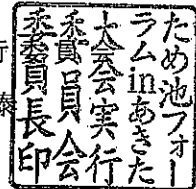 行
泰
ため池フォー
ラムinあきた
大会実行
委員会
委員長印